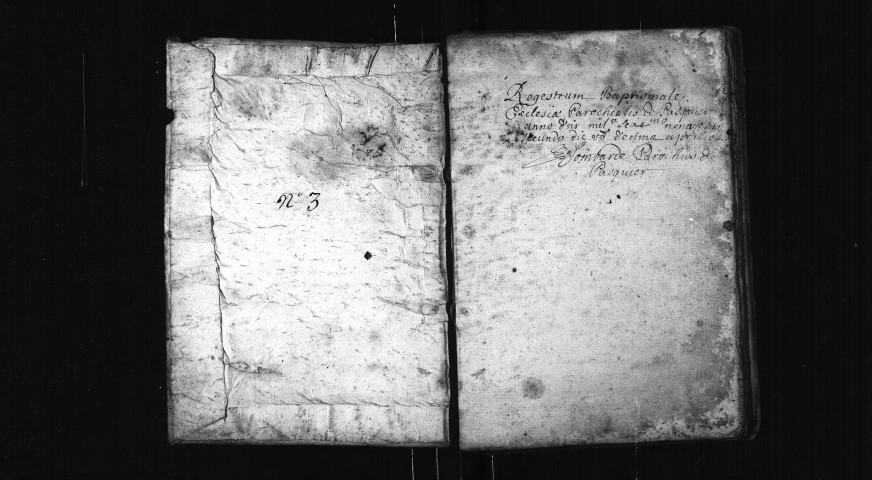 N.º 3
Regestrum Baptismale
Ecclesiæ Parochialis de Pasquier
anno dni mil.º
secundo die decima aprilis
Lombarde Parochus de
Pasquier